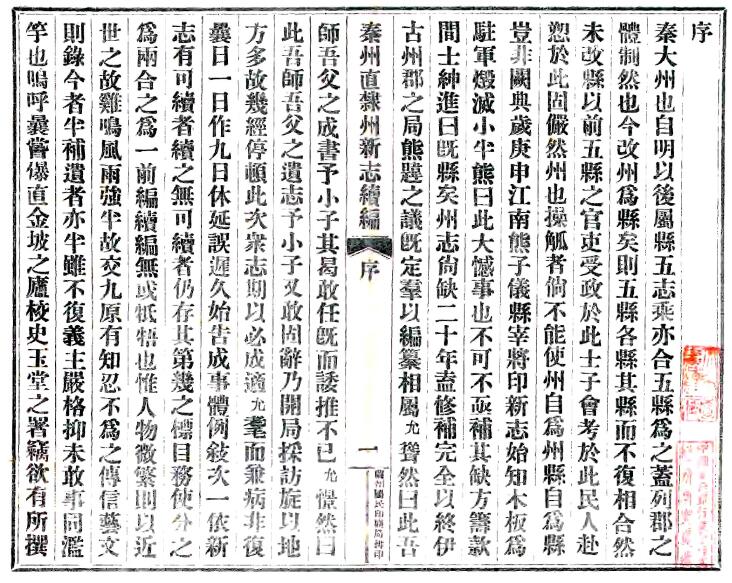 序
秦大州也自明以後屬縣五志乘亦合五縣爲之蓋列郡之
體制然也今改州爲縣矣則五縣各縣其縣而不復相合然
未改縣以前五縣之官吏受政於此士子會考於此民人赴
愬於此固儼然州也操觚者倘不能使州自爲州縣自爲縣
豈非闕典歲庚申江南熊子儀縣宰將印新志始知木板爲
駐軍燬滅小半熊曰此大憾事也不可不亟補其缺方籌款
間士紳進曰旣縣矣州志尙缺二十年盍修補完全以終伊
古州郡之局熊韙之議旣定羣以編纂相屬允聳然曰此吾
秦州直隸州新志續編
序
一
蘭州國民印刷局排印
師吾父之成書予小子其曷敢任旣而諉推不已允憬然曰
此吾師吾父之遺志予小子又敢固辭乃開局採訪旋以地
方多故幾經停頓此次衆志期以必成適允耄而兼病非復
曩日一日作九日休延誤遲久始告成事體例敍次一依新
志有可續者續之無可續者仍存其第幾之標目務使分之
爲兩合之爲一前編續編無或牴牾也惟人物微繁則以近
世之故雞鳴風雨強半故交九原有知忍不爲之傳信藝文
則錄今者半補遺者亦半雖不復義主嚴格抑未敢事同濫
竽也嗚呼曩嘗儤直金坡之廬校史玉堂之署竊欲有所撰